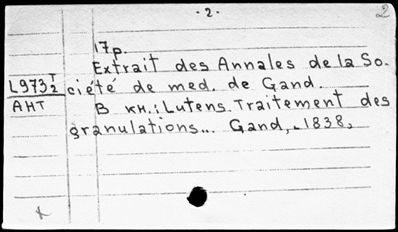 - 2 -
2
17p.
Extrait des Annales de la So-
L973 T/2 ciété de med. de Gand.
AHT В кн.: Lutens. Traitement des
granulations... Gand, 1838,